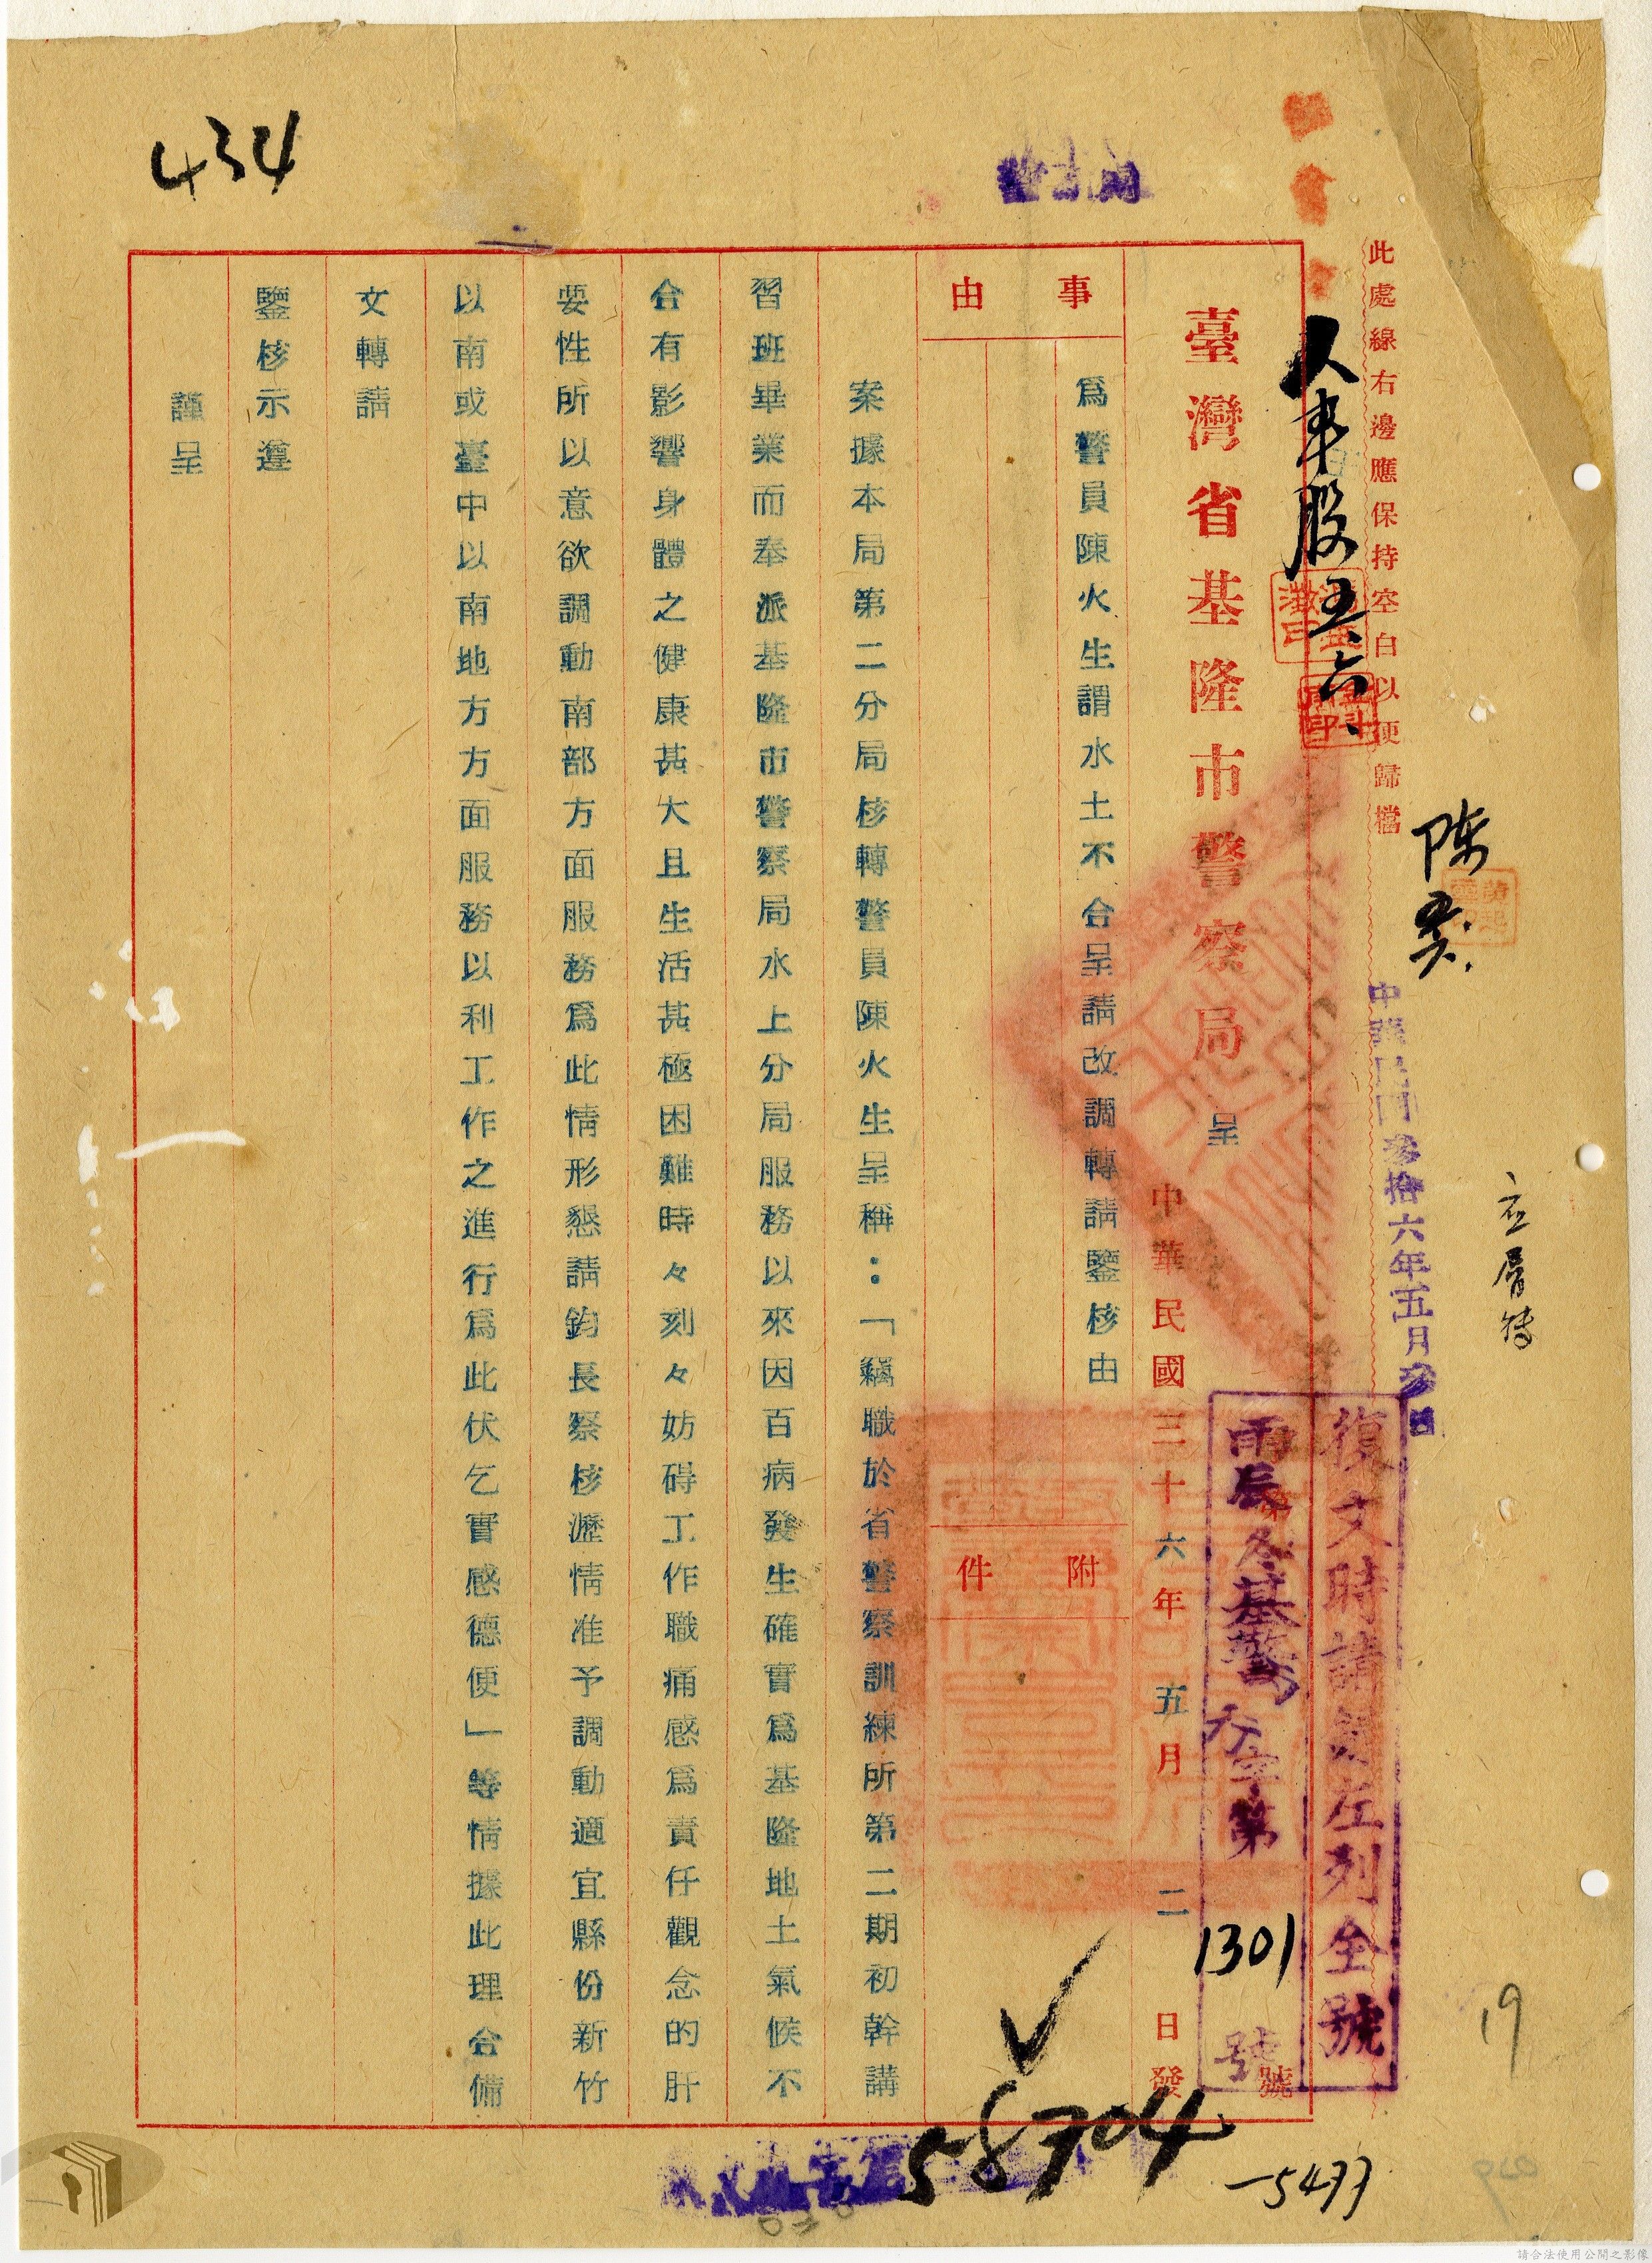 此處線右邊應保持空白以便歸檔
434
人事股
五、六、
陳
中華民國參拾六年五月參日
復文時請照左列全號
雨辰冬基警
字第1301號
第
號
臺灣省基隆市警察局 呈
中華民國三十六年五月二日發
事由
爲警員陳火生謂水土不合呈請改調轉請鑒核由
附件
案據本局第二分局核轉警員陳火生呈稱：「竊職於省警察訓練所第二期初幹講
習班畢業而奉派基隆市警察局水上分局服務以來因百病發生確實爲基隆地土氣候不
合有影響身體之健康甚大且生活甚極困難時々刻々妨碍工作職痛感爲責任觀念的肝
要性所以意欲調動南部方面服務爲此情形懇請鈞長察核瀝情准予調動適宜縣份新竹
以南或臺中以南地方方面服務以利工作之進行爲此伏乞實感德便」等情據此理合備
文轉請
鑒核示遵
謹呈
58704
5477
19
請合法使用公開之影像